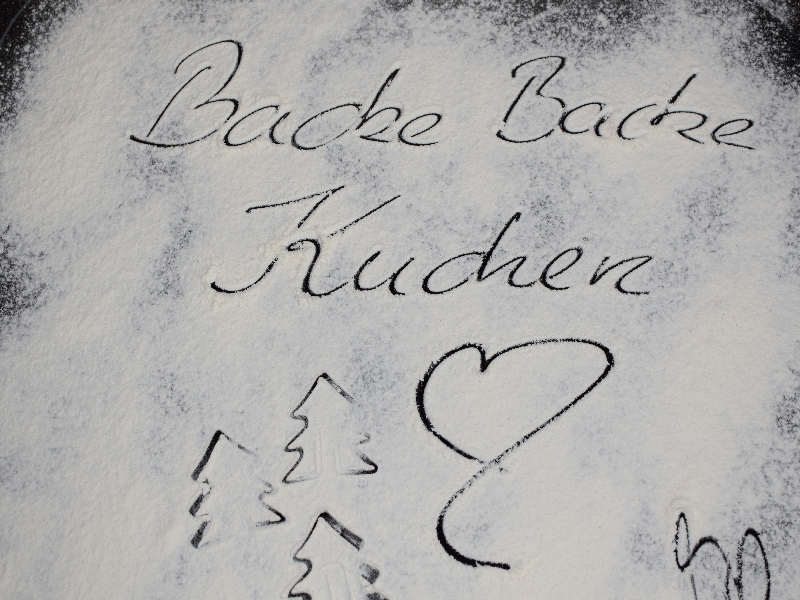 Backe Backe
Kuchen